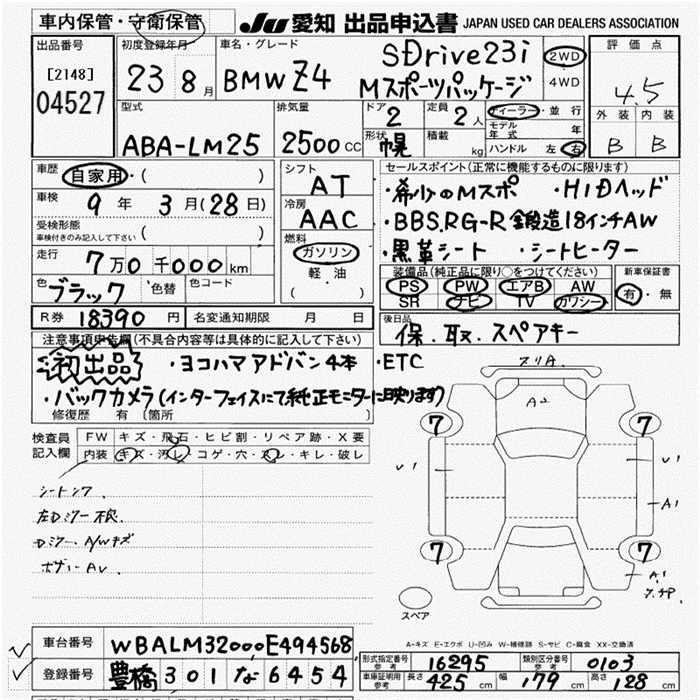 車内保管・守衛保管
JU 愛知 出品申込書 JAPAN USED CAR DEALERS ASSOCIATION
出品番号
[2148]
04527
初度登録年月
23 8月
車名・グレード
BMW Z4
SDrive23i
Mスポーツパッケージ
2WD
4WD
評価点
4.5
外装 内装
B B
型式
ABA-LM25
排気量
2500 CC
ドア
2
形状
幌
定員
2人
積載
kg
ディーラー・並行
モデル年式 年
ハンドル 左 右
車歴
自家用・( )
車検
9年 3月(28日)
受検形態
車検付きのみ記入して下さい ( )
走行
7万0千000km
色
ブラック
色替
色コード
シフト
AT
冷房
AAC
燃料
ガソリン
軽・油
( )
セールスポイント(正常に機能するものに限ります)
・希少のMスポ ・HIDヘッド
・BBS.RG-R 鍛造18インチAW
・黒革シート ・シートヒーター
装備品(純正品に限り○をつけてください)
PS PW エアB AW
SR ナビ TV カワシート
新車保証書
有・無
R券 18390円 名変通知期限 月 日
後日品
保. 取. スペアキー
注意事項申告欄(不具合内容等は具体的に記入して下さい)
初出品 ・ヨコハマアドバン4本 ・ETC
・バックカメラ(インターフェイスにて純正モニターに映ります)
修復歴 有 〔箇所
検査員
記入欄
FW キズ・飛石・ヒビ割・リペア跡・X要
内装 キズ・汚レ・コゲ・穴・スレ・キレ・破レ
左Dミラー
Dミラー. A/Wキズ
A2
7 7
U1 U1
A1
7 7
A1
スペア
A-キズ E-エクボ U-凹み W-補修跡 S-サビ C-腐食 XX-交換済
車台番号 WBALM32000E494568
登録番号 豊橋 301 な 6454
形式指定番号
参考
16295
類別区分番号
参考
0103
車庫証明用
参考
長さ 425 cm 幅 179 cm 高さ 128 cm